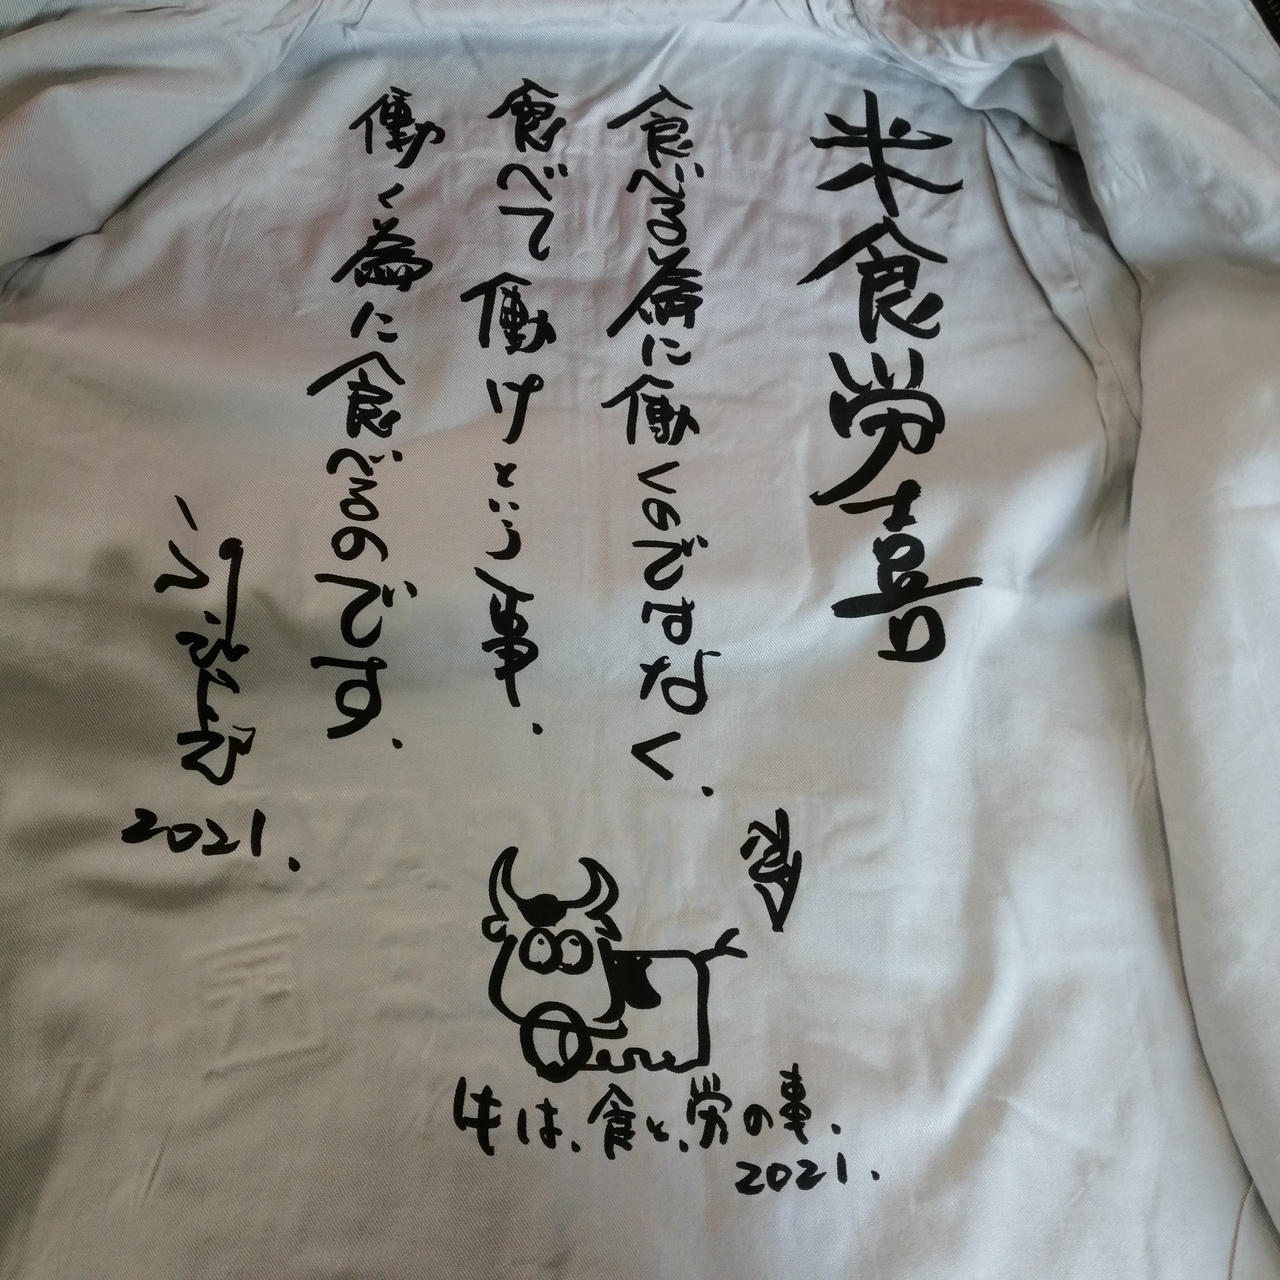 米食労喜
食べる為に働くのではなく.
食べて働けという事.
働く為に食べるのです.
2021.
牛は、食と、労の事.
2021.